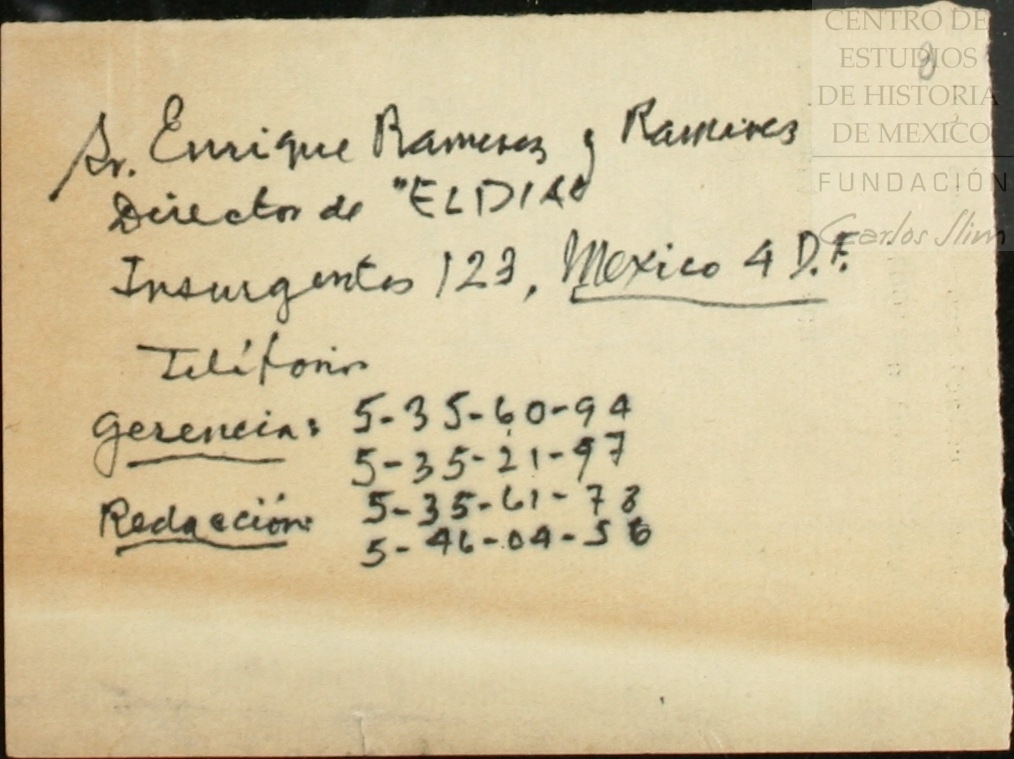 CENTRO DE
ESTUDIOS
DE HISTORIA
DE MEXICO
FUNDACIÓN
Carlos Slim
Sr. Enrique Ramirez y Ramirez
Director de "EL DIA"
Insurgentes 123, Mexico 4 D.F.
Teléfonos
Gerencia: 5-35-60-94
5-35-21-97
Redacción: 5-35-61-78
5-46-04-56